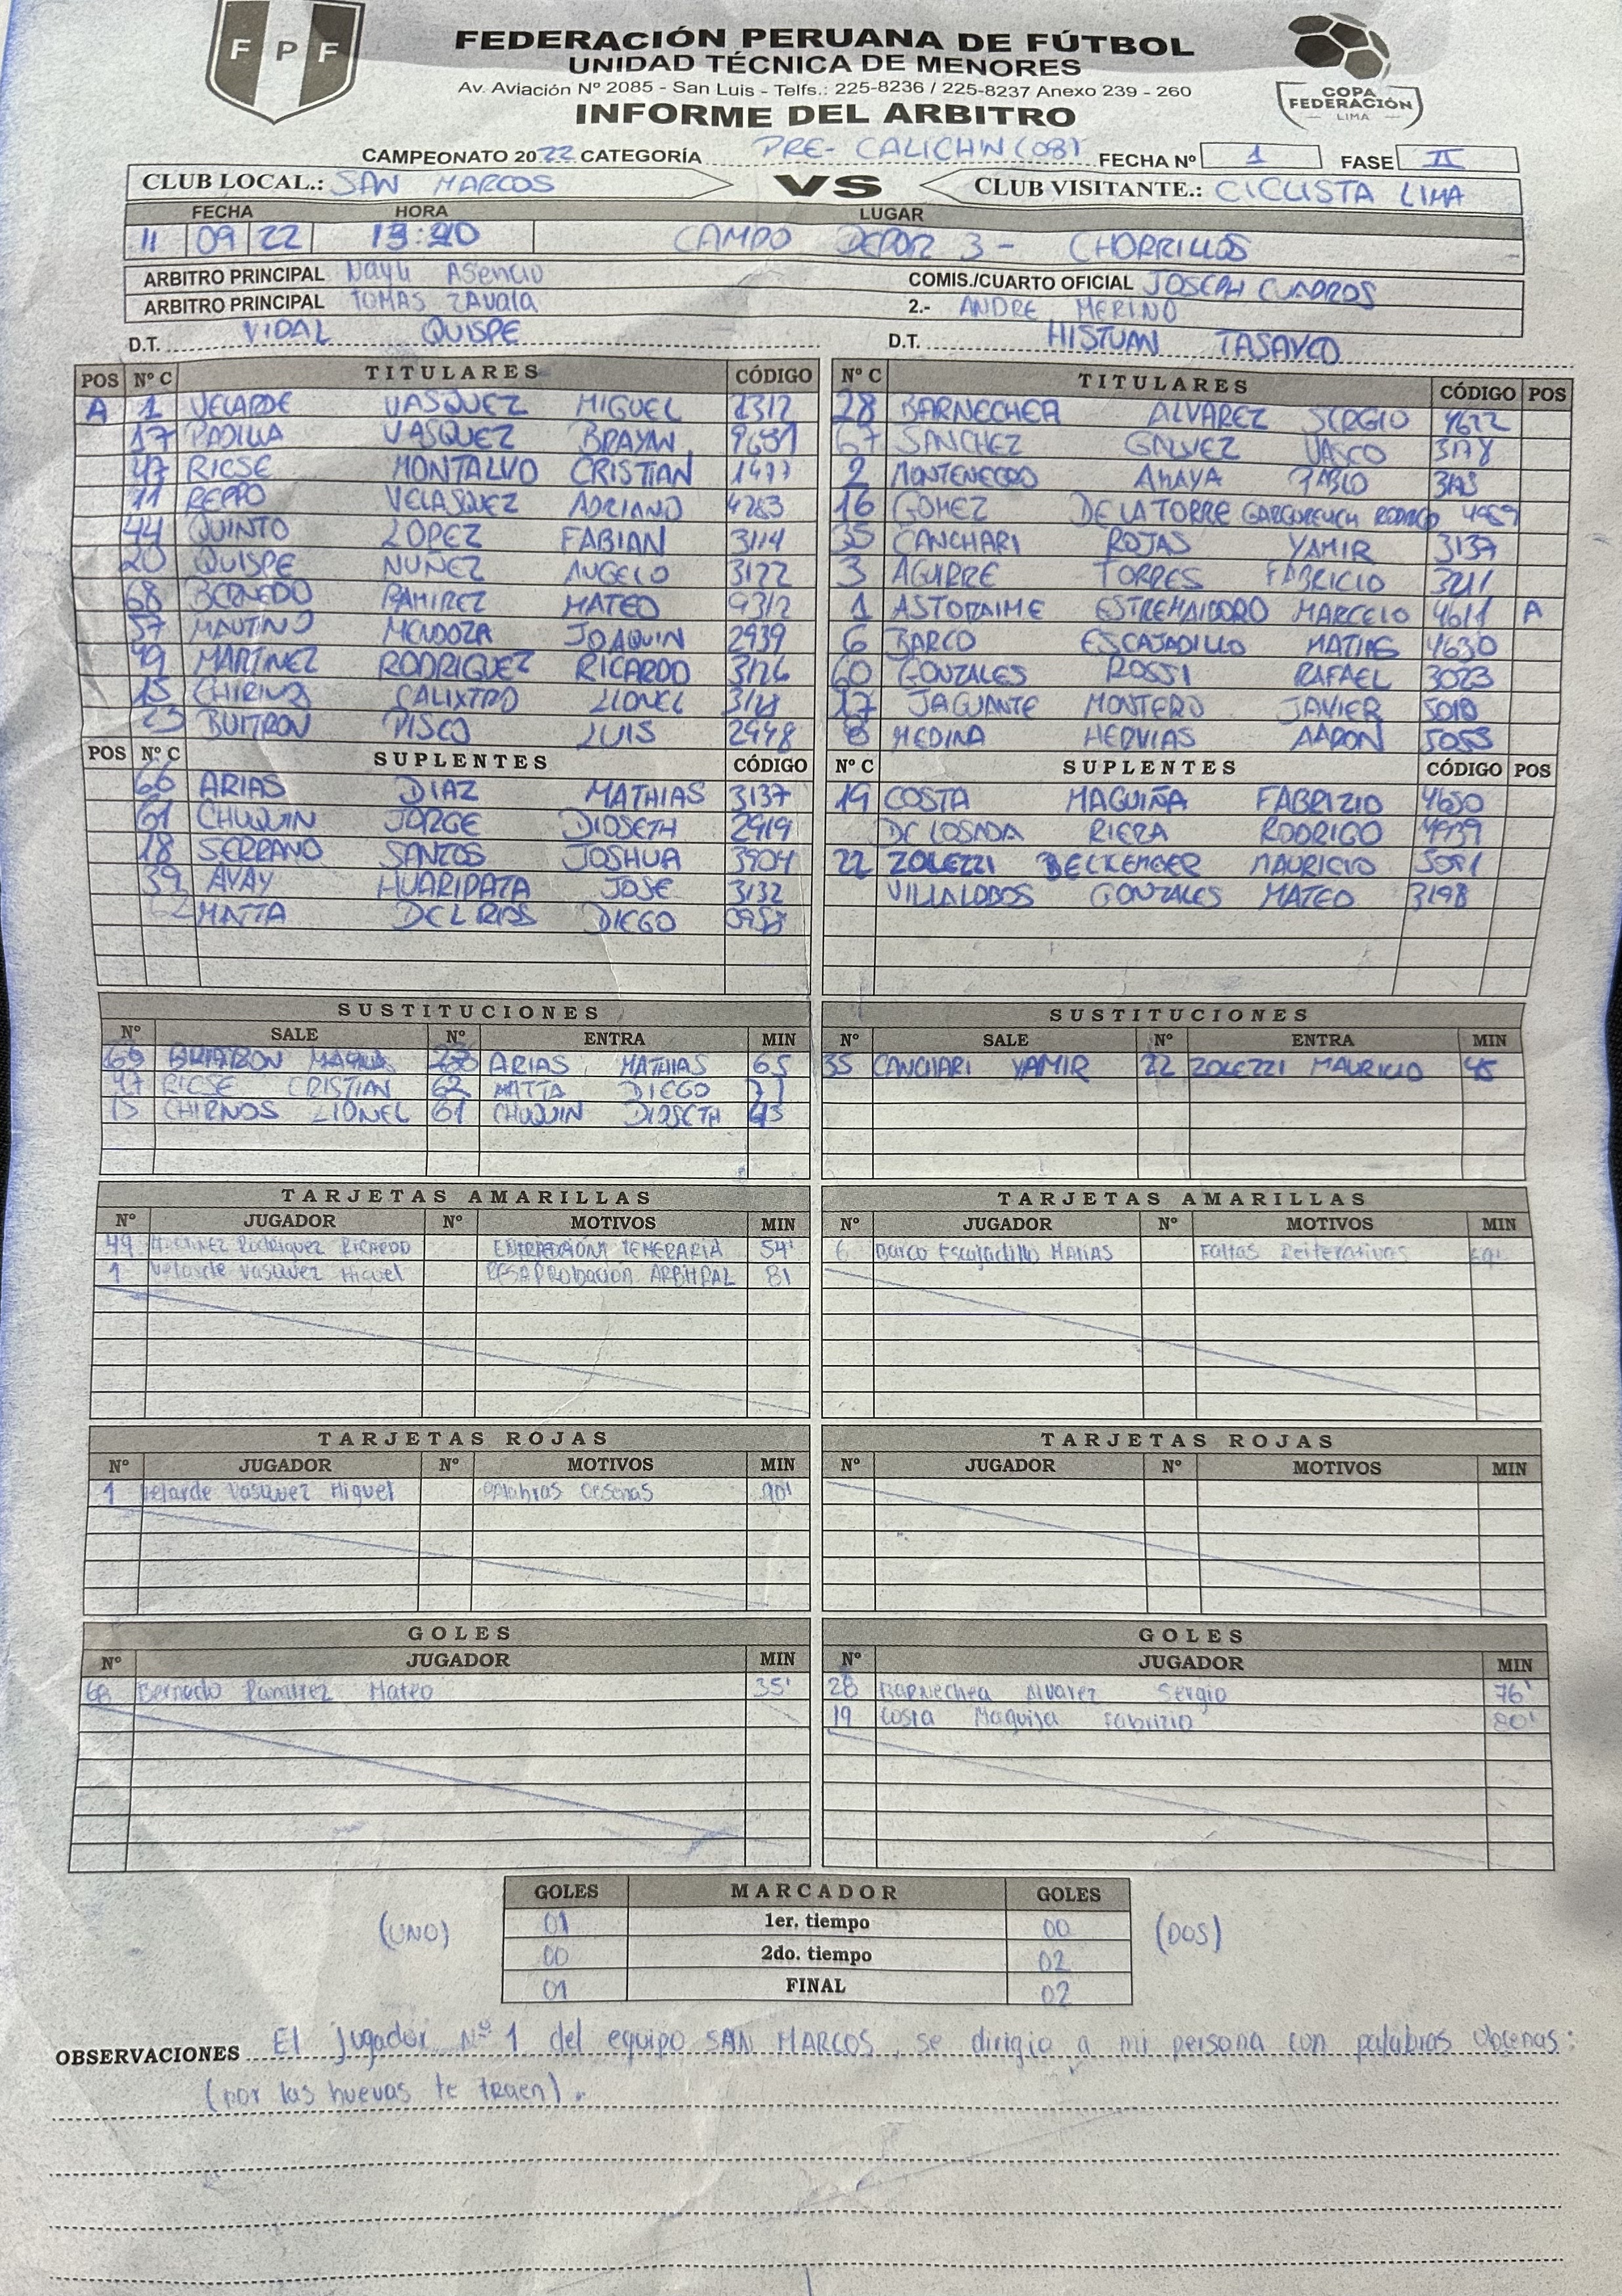 F P F
FEDERACIÓN PERUANA DE FÚTBOL
UNIDAD TÉCNICA DE MENORES
Av. Aviación Nº 2085 - San Luis - Telfs.: 225-8236 / 225-8237 Anexo 239 - 260
INFORME DEL ARBITRO
COPA
FEDERACIÓN
LIMA
CAMPEONATO 2022 CATEGORÍA PRE- CALICHIN (08) FECHA Nº 1 FASE II
CLUB LOCAL.: SAN MARCOS VS CLUB VISITANTE.: CICLISTA LIMA
FECHA HORA LUGAR
11 09 22 CAMPO DEPOR 3 - CHORRILLOS
ARBITRO PRINCIPAL Nayli Asencio COMIS./CUARTO OFICIAL JOSEPH CUADROS
ARBITRO PRINCIPAL TOMAS ZAVALA 2.- ANDRE MERINO
D.T. VIDAL QUISPE D.T. HISTUAN TASAYCO
POS Nº C TITULARES CÓDIGO
A 1 VELARDE VASQUEZ MIGUEL 2312
17 PADILLA VASQUEZ BRAYAN
47 RICSE MONTALVO CRISTIAN 1477
11 REPPO VELASQUEZ ADRIANO 4263
44 QUINTO LOPEZ FABIAN 3114
20 QUISPE NUÑEZ ANGELO 3122
68 BERNEDO RAMIREZ MATEO 9312
57 MAUTINO MENDOZA JOAQUIN 2939
49 MARTINEZ RODRIGUEZ RICARDO 3126
15 CHIRINOS CALIXTRO LIONEL
23 BUITRON PISCO LUIS 2948
POS Nº C SUPLENTES CÓDIGO
66 ARIAS DIAZ MATHIAS 3137
61 CHUQUIN JORGE DIOSETH 2919
18 SERRANO SANTOS JOSHUA 3904
39 AYAY HUARIPATA JOSE 3132
62 MATTA DEL RIOS DIEGO
Nº C TITULARES CÓDIGO POS
28 BARNECHEA ALVAREZ SERGIO 4622
67 SANCHEZ GALVEZ VASCO 3178
2 MONTENEGRO AMAYA PABLO
16 GOMEZ DE LA TORRE GARGUREVICH RODRIGO
35 CANCHARI ROJAS YAMIR 3137
3 AGUIRRE TORRES FABRICIO 3211
1 ASTORAIME ESTREMAIDORO MARCELO 4611 A
6 BARCO ESCAJADILLO MATIAS 4630
60 GONZALES ROSSI RAFAEL 3023
17 JAGUANTE MONTERO JAVIER 5010
8 MEDINA HERVIAS AARON 5053
Nº C SUPLENTES CÓDIGO POS
19 COSTA MAGUIÑA FABRIZIO 4650
DE LOSADA RIEZA RODRIGO 4939
22 ZOLEZZI BECKEMEER MAURICIO 5091
VILLALOBOS GONZALES MATEO 3198
SUSTITUCIONES
Nº SALE Nº ENTRA MIN
ARIAS MATHIAS 65
47 RICSE CRISTIAN 62 MATTA DIEGO 71
15 CHIRNOS LIONEL 61 CHUQUIN DIOSETH 43
SUSTITUCIONES
Nº SALE Nº ENTRA MIN
35 CANCHARI YAMIR 22 ZOLEZZI MAURICIO 45
TARJETAS AMARILLAS
Nº JUGADOR Nº MOTIVOS MIN
49 Martinez Rodriguez RICARDO TEMERARIA 54'
1 Velarde Vasquez Miguel DESAPROBACIÓN ARBITRAL 81
TARJETAS AMARILLAS
Nº JUGADOR Nº MOTIVOS MIN
6 Barco Escajadillo MATIAS Faltas Reiterativas
TARJETAS ROJAS
Nº JUGADOR Nº MOTIVOS MIN
1 Velarde Vasquez Miguel palabras obsenas 90'
TARJETAS ROJAS
Nº JUGADOR Nº MOTIVOS MIN
GOLES
Nº JUGADOR MIN
68 Bernedo Ramirez Mateo 35'
GOLES
Nº JUGADOR MIN
28 BARNECHEA Alvarez Sergio 76'
19 Costa Maguiña Fabrizio 80'
GOLES MARCADOR GOLES
(UNO) 01 1er. tiempo 00 (DOS)
00 2do. tiempo 02
01 FINAL 02
OBSERVACIONES El jugador Nº 1 del equipo SAN MARCOS, se dirigio a mi persona con palabras obcenas:
(por las huevas te traen).